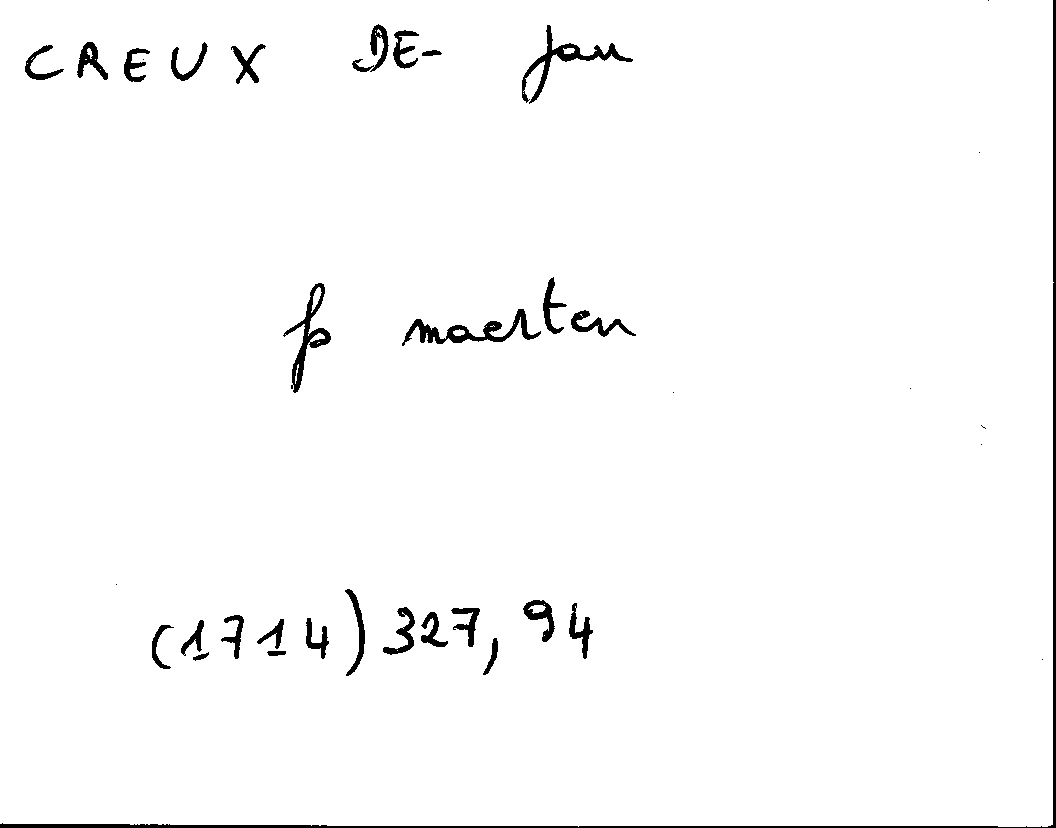 CREUX DE- Jan
fs maerten
(1714) 327, 94